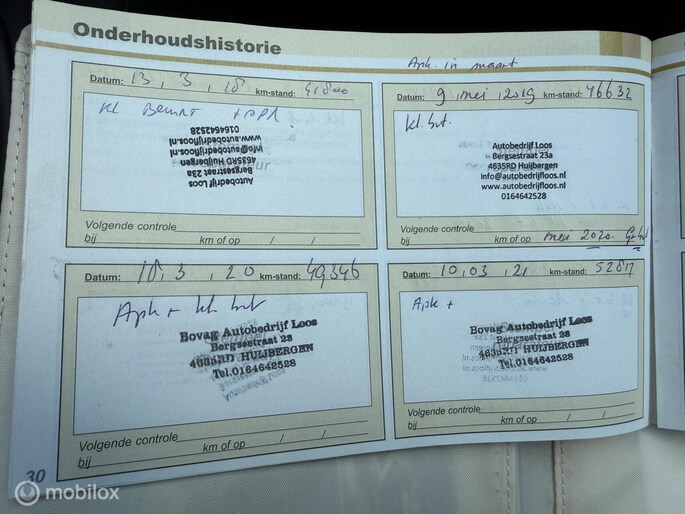 Onderhoudshistorie
Apk. in maart
Datum: 13, 3, 18 km-stand: 41800
Kl Beurt + APK
Autobedrijf Loos
Bergsestraat 23a
4635RD Huijbergen
info@autobedrijfloos.nl
www.autobedrijfloos.nl
0164642528
Volgende controle
bij km of op / /
Datum: 9, mei, 2019 km-stand: 46632
kl. brt.
Autobedrijf Loos
Bergsestraat 23a
4635RD Huijbergen
info@autobedrijfloos.nl
www.autobedrijfloos.nl
0164642528
Volgende controle
bij km of op mei 2020. Gr brt
Datum: 18, 3, 20 km-stand: 49346
Apk + kl brt
Bovag Autobedrijf Loos
Bergsestraat 23
4635RD HUIJBERGEN
Tel.0164642528
Volgende controle
bij km of op / /
Datum: 10, 03, 21 km-stand:
Apk +
Bovag Autobedrijf Loos
Bergsestraat 23
4635RD HUIJBERGEN
Tel.0164642528
Volgende controle
bij km of op / /
30
mobilox